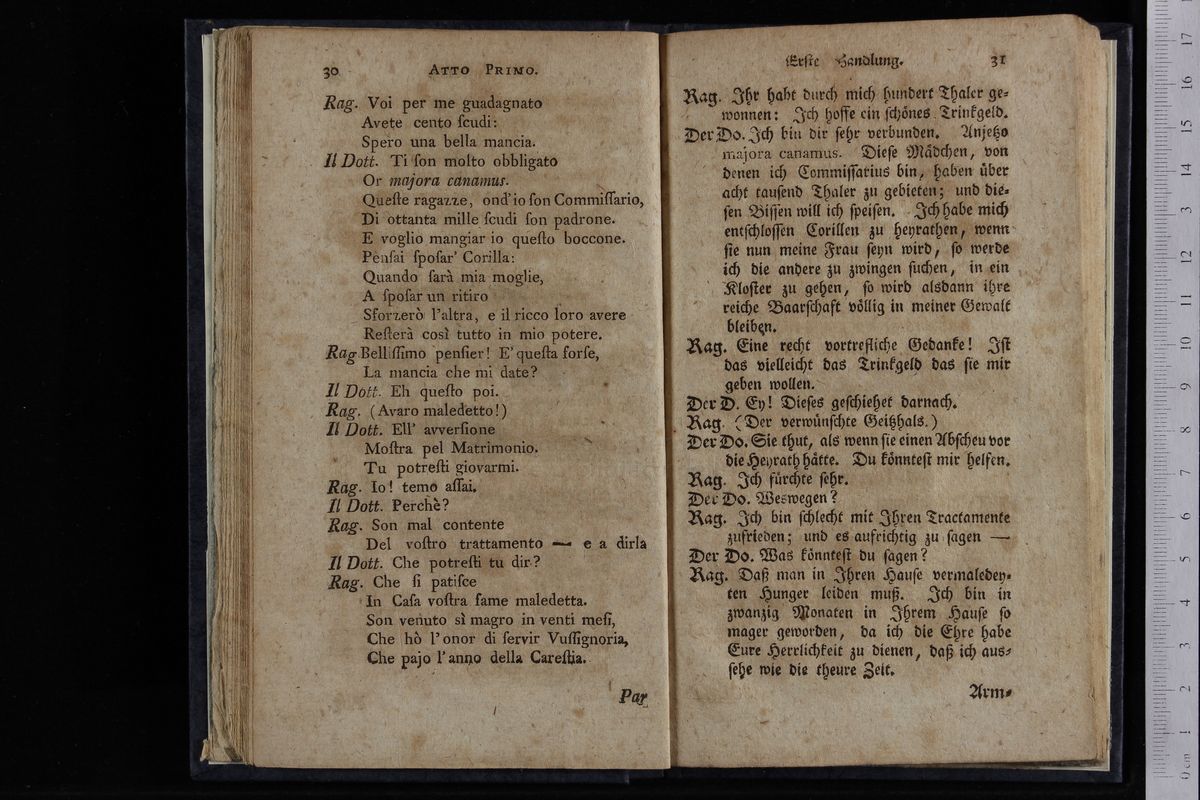 30 ATTO PRIMO.
Rag. Voi per me guadagnato
Avete cento ſcudi:
Spero una bella mancia.
Il Dott. Ti ſon molto obbligato
Or majora canamus.
Queſte ragazze, ond'io ſon Commiſſario,
Di ottanta mille ſcudi ſon padrone.
E voglio mangiar io queſto boccone.
Penſai ſpoſar' Corilla:
Quando ſarà mia moglie,
A ſpoſar un ritiro
Sforzerò l'altra, e il ricco loro avere
Reſterà così tutto in mio potere.
Rag. Belliſſimo penſier! E' queſta forſe,
La mancia che mi date?
Il Dott. Eh queſto poi.
Rag. (Avaro maledetto!)
Il Dott. Ell' avverſione
Moſtra pel Matrimonio.
Tu potreſti giovarmi.
Rag. Io! temo aſſai.
Il Dott. Perchè?
Rag. Son mal contente
Del voſtro trattamento — e a dirla
Il Dott. Che potreſti tu dir?
Rag. Che ſi patiſce
In Caſa voſtra fame maledetta.
Son venuto sì magro in venti meſi,
Che hò l'onor di ſervir Vuſſignoria,
Che pajo l'anno della Careſtia.
Par
Erſte Handlung. 31
Rag. Ihr habt durch mich hundert Thaler ge⸗
wonnen: Ich hoffe ein ſchönes Trinkgeld.
Der Do. Ich bin dir ſehr verbunden. Anjetzo
majora canamus. Dieſe Mädchen, von
denen ich Commiſſarius bin, haben über
acht tauſend Thaler zu gebieten; und die⸗
ſen Biſſen will ich ſpeiſen. Ich habe mich
entſchloſſen Corillen zu heyrathen, wenn
ſie nun meine Frau ſeyn wird, ſo werde
ich die andere zu zwingen ſuchen, in ein
Kloſter zu gehen, ſo wird alsdann ihre
reiche Baarſchaft völlig in meiner Gewalt
bleiben.
Rag. Eine recht vortrefliche Gedanke! Iſt
das vielleicht das Trinkgeld das ſie mir
geben wollen.
Der D. Ey! Dieſes geſchiehet darnach.
Rag. (Der verwünſchte Geitzhals.)
Der Do. Sie thut, als wenn ſie einen Abſcheu vor
die Heyrath hätte. Du könnteſt mir helfen.
Rag. Ich fürchte ſehr.
Der Do. Weswegen?
Rag. Ich bin ſchlecht mit Ihren Tractamente
zufrieden; und es aufrichtig zu ſagen —
Der Do. Was könnteſt du ſagen?
Rag. Daß man in Ihren Hauſe vermaledey⸗
ten Hunger leiden muß. Ich bin in
zwanzig Monaten in Ihrem Hauſe ſo
mager geworden, da ich die Ehre habe
Eure Herrlichkeit zu dienen, daß ich aus⸗
ſehe wie die theure Zeit.
Arm⸗
0 cm 1 2 3 4 5 6 7 8 9 10 11 12 13 14 15 16 17